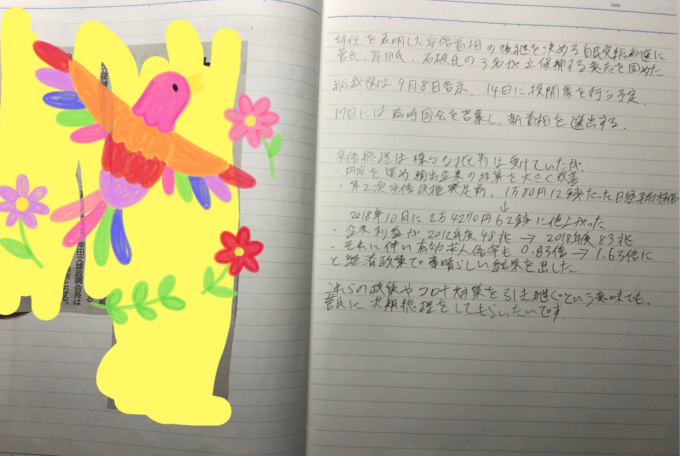 辞任を表明した安倍首相の後継を決める自民党総裁選に
菅氏、岸田氏、石破氏の3名が立候補する意志を固めた
総裁選は9月8日告示、14日に投開票を行う予定
17日には臨時国会を召集し、新首相を選出する。
安倍総理は様々な批判は受けていたが、
・円安を進め輸出企業の採算を大きく改善
・第2次安倍政権発足前、1万80円12銭だった日経平均株価
↓
2018年10月に2万4270円62銭に値上がった
・企業利益が2012年度48兆→2018年度83兆
・それに伴い有効求人倍率も0.83倍→1.63倍に
と経済政策で素晴らしい結果を出した
これらの政策やコロナ対策を引き継ぐという意味でも、
菅氏に次期総理をしてもらいたいです。
Date
田文雄政調会長は